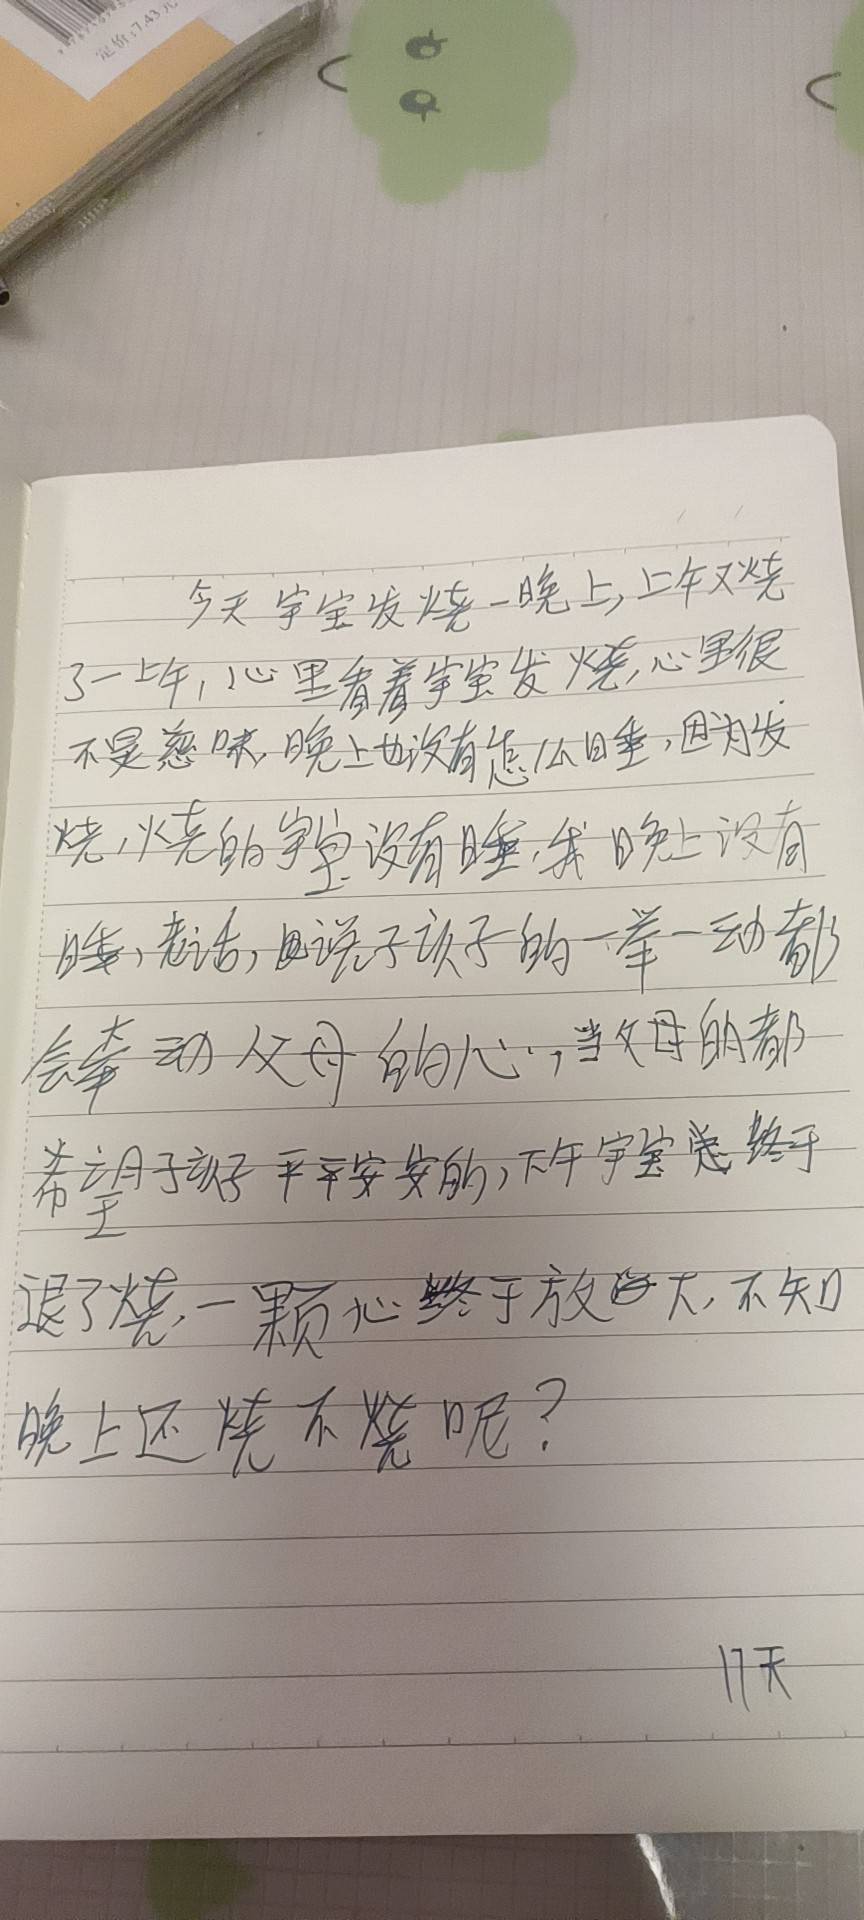 定价:7.43元
今天宇宝发烧一晚上,上午又烧
了一上午,心里看着宇宝发烧,心里很
不是惹味,晚上也没有怎么睡,因为发
烧,烧的宇宝没有睡,我晚上没有
睡,老话,说子孩子的一举一动都
会牵动父母的心,,当父母的都
希望子孩子平平安安的,下午宇宝 终于
退了烧,一颗心终于放 大,不知
晚上还烧不烧呢?
17天